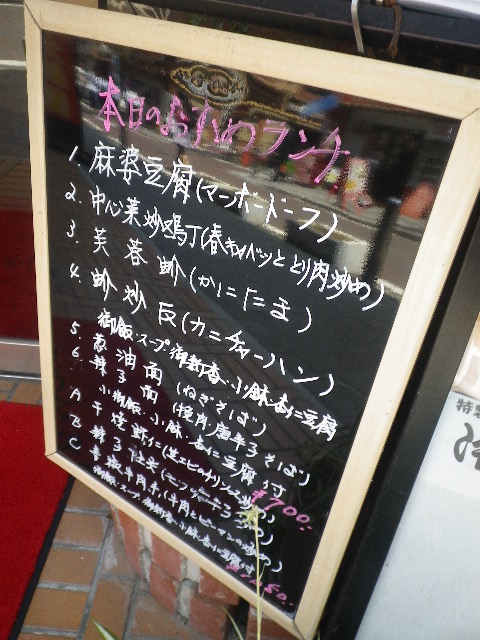 本日のおすすめランチ
1. 麻婆豆腐(マーボードーフ)
2. 中心菜炒鶏丁(春キャベツと とり肉炒め)
3. 芙蓉蚧(かにたま)
4. 蚧炒反(カニチャーハン)
御飯・スープ・御新香・小鉢・杏仁豆腐
5. 葱油面(ねぎそば)
6. 辣子面(豚肉唐辛子そば)
小御飯・小鉢・杏仁豆腐付
¥700.-
A 干焼蝦仁(芝エビのチリソース炒め)
B 辣子
C 青椒牛肉絲(牛肉とピーマンの炒め)
御飯・スープ・御新香・小鉢・杏仁豆腐付
特製
冷